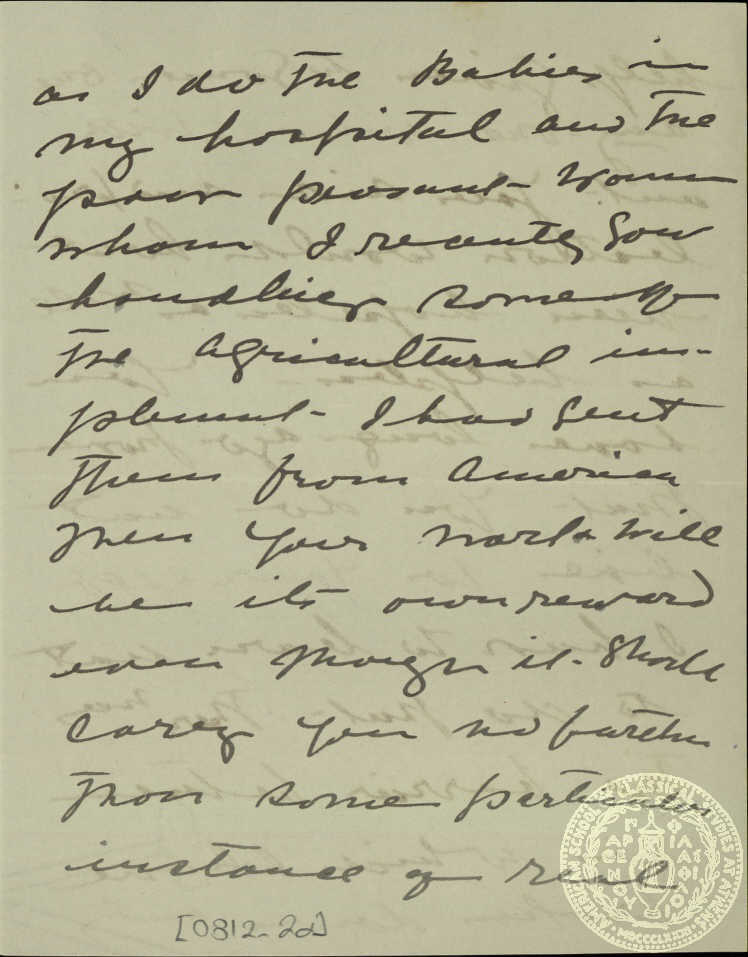 as I do the Babies in
my hospital and the
poor peasant women
whom I recently saw
handling some of
the agricultural im-
plements I had sent
them from America
then your work will
be its own reward
even though it should
carry you no further
than some particular
instance of real
[0812-2d]
AMERICAN SCHOOL OF CLASSICAL STUDIES AT ATHENS
MDCCCLXXXI